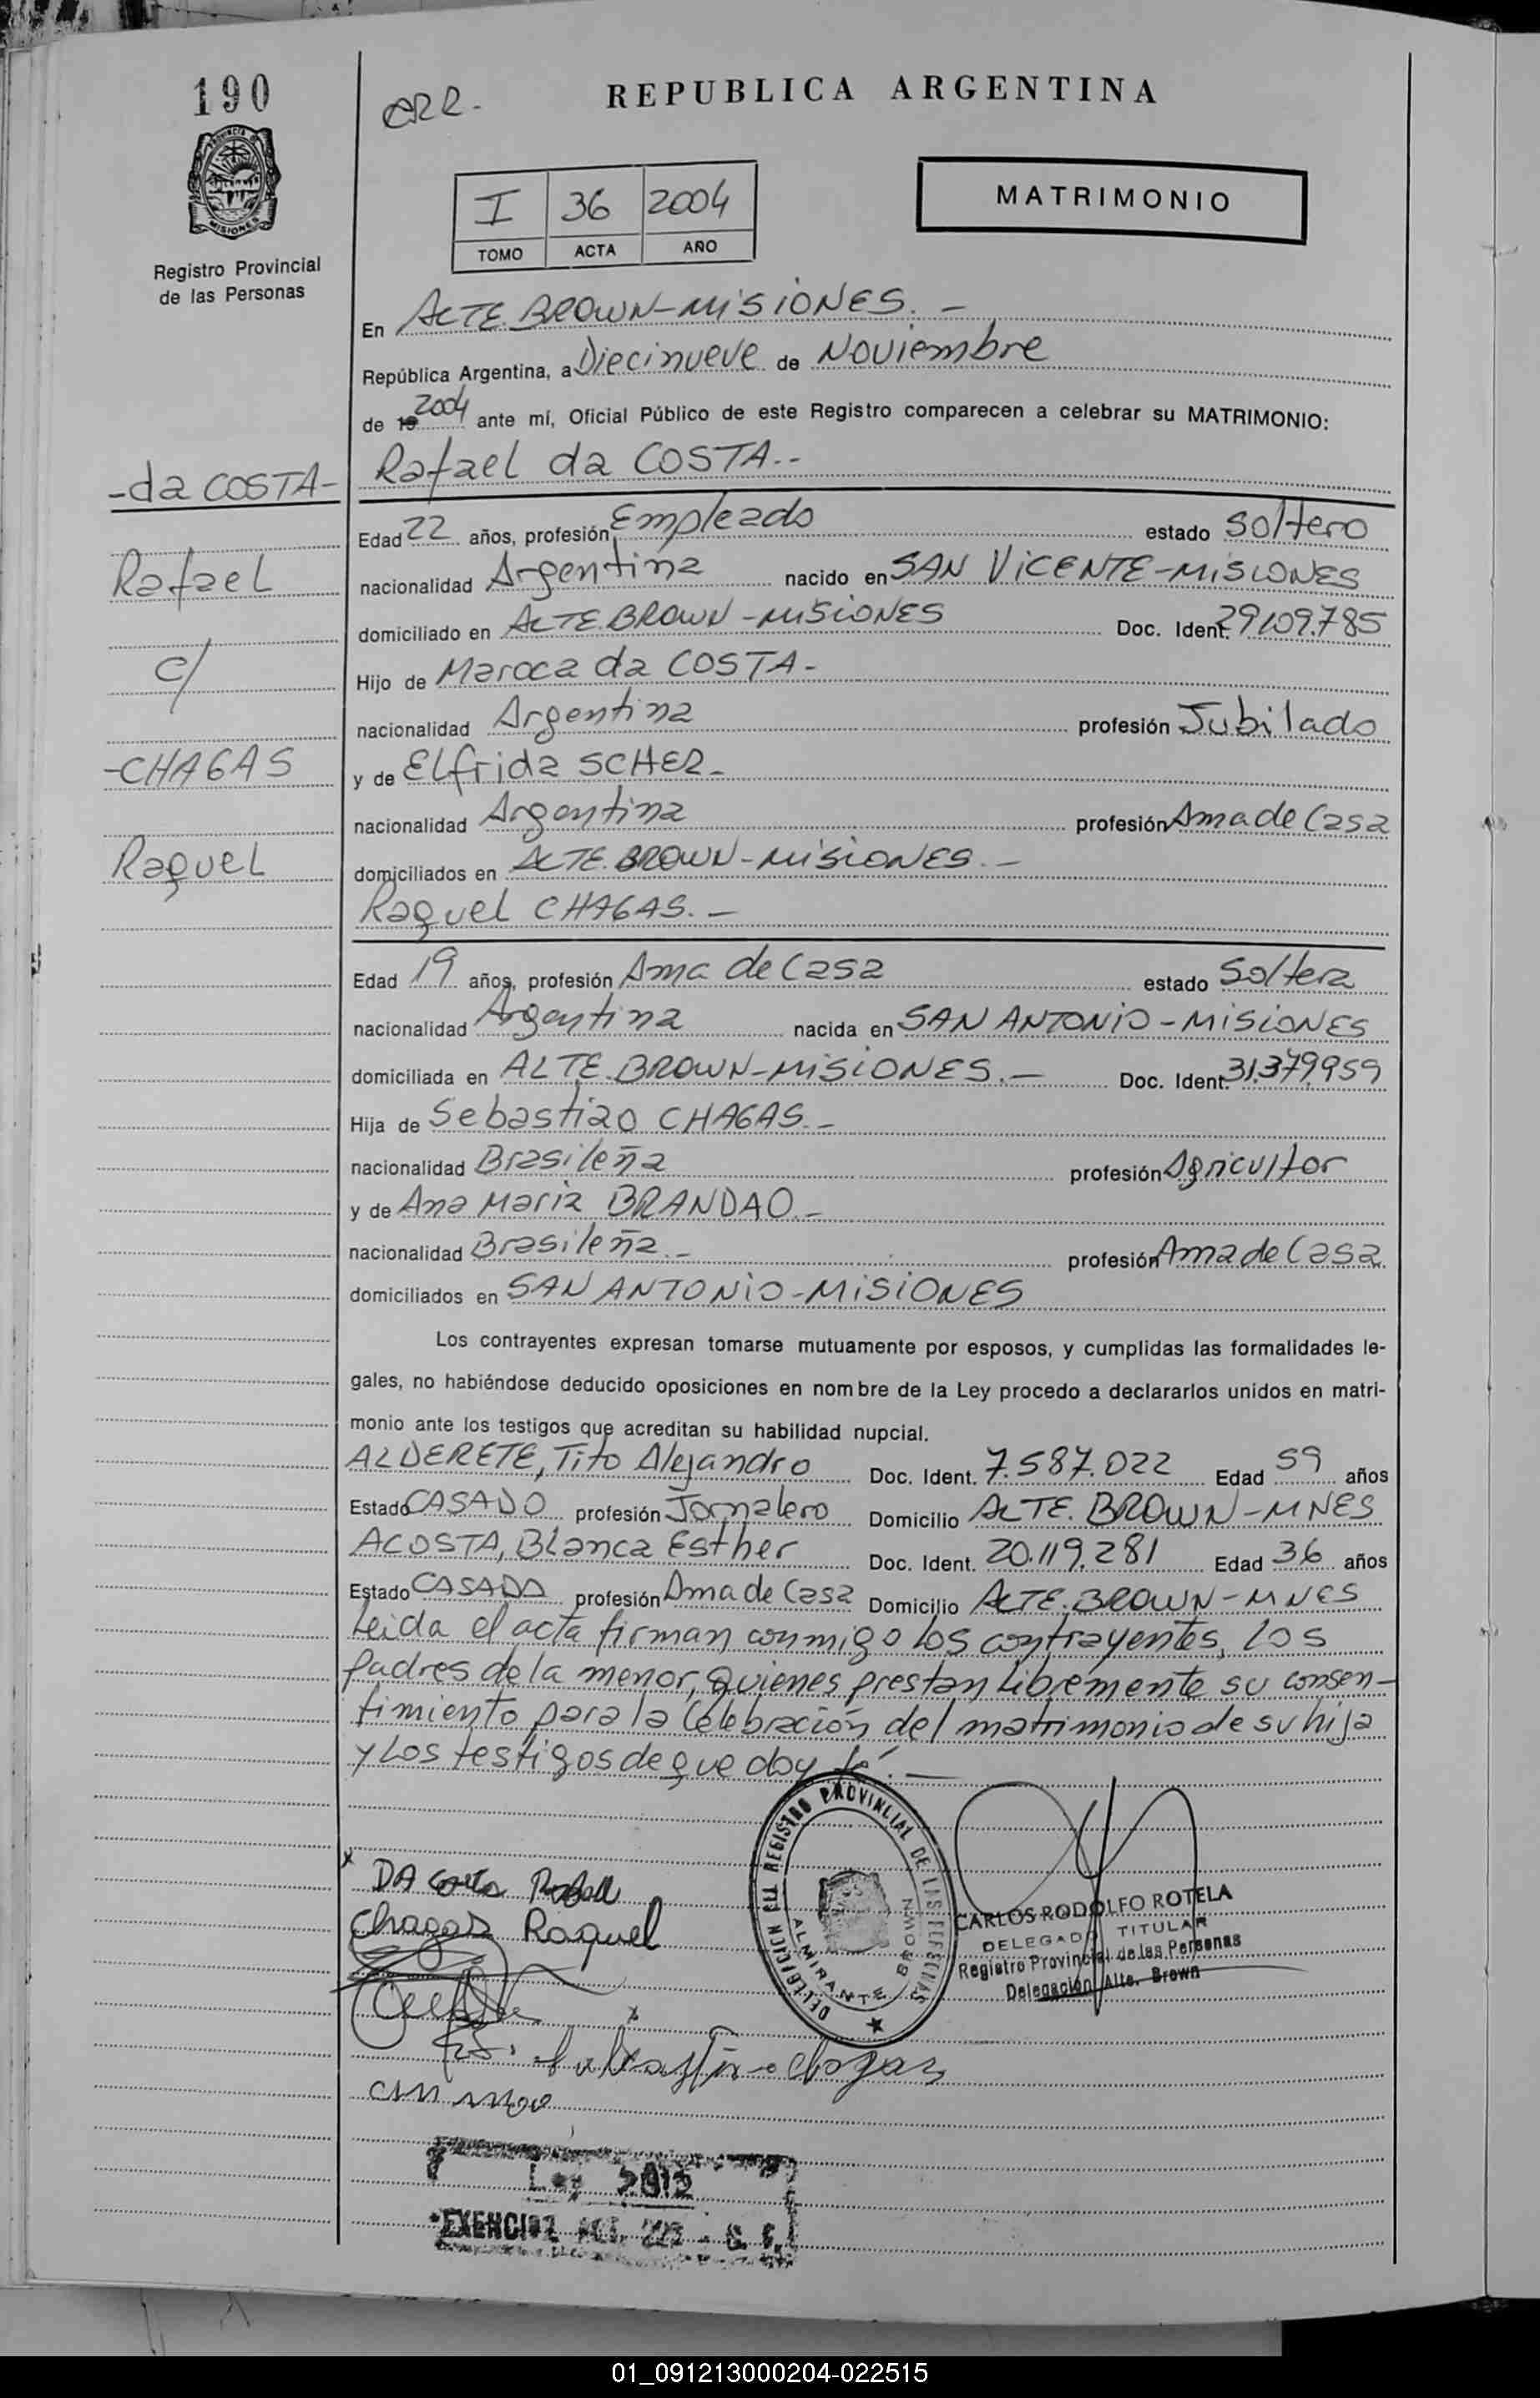 190
CRR.
REPUBLICA ARGENTINA
PROVINCIA DE
MISIONES
Registro Provincial
de las Personas
I 36 2004
TOMO ACTA AÑO
MATRIMONIO
En ALTE. BROWN-MISIONES.-
República Argentina, a Diecinueve de Noviembre
de 19 2004 ante mí, Oficial Público de este Registro comparecen a celebrar su MATRIMONIO:
-da COSTA-
Rafael
c/
-CHAGAS
Raquel
Rafael da COSTA.-
Edad 22 años, profesión Empleado estado Soltero
nacionalidad Argentina nacido en SAN VICENTE-MISIONES
domiciliado en ALTE. BROWN-MISIONES Doc. Ident. 29.109.785
Hijo de Maroca da COSTA-
nacionalidad Argentina profesión Jubilado
y de Elfrida SCHER-
nacionalidad Argentina profesión Ama de Casa
domiciliados en ALTE. BROWN-MISIONES.-
Raquel CHAGAS.-
Edad 19 años, profesión Ama de Casa estado Soltera
nacionalidad Argentina nacida en SAN ANTONIO-MISIONES
domiciliada en ALTE. BROWN-MISIONES.- Doc. Ident. 31.379.959
Hija de Sebastiao CHAGAS.-
nacionalidad Brasileña profesión Agricultor
y de Ana Maria BRANDAO.-
nacionalidad Brasileña.- profesión Ama de Casa
domiciliados en SAN ANTONIO-MISIONES
Los contrayentes expresan tomarse mutuamente por esposos, y cumplidas las formalidades le-
gales, no habiéndose deducido oposiciones en nombre de la Ley procedo a declararlos unidos en matri-
monio ante los testigos que acreditan su habilidad nupcial.
ALDERETE, Tito Alejandro Doc. Ident. 7.587.022 Edad 59 años
Estado CASADO profesión Jornalero Domicilio ALTE. BROWN-MNES
ACOSTA, Blanca Esther Doc. Ident. 20.119.281 Edad 36 años
Estado CASADA profesión Ama de Casa Domicilio ALTE. BROWN-MNES
Leida el acta firman conmigo los contrayentes, los
padres de la menor, quienes prestan libremente su consen-
timiento para la celebración del matrimonio de su hija
y los testigos de que doy fé.-
x DA Costa Rafael
Chagas Raquel
x
Sebastiao chagas
DELEGACION DEL REGISTRO PROVINCIAL DE LAS PERSONAS
ALMIRANTE BROWN
CARLOS RODOLFO ROTELA
DELEGADO TITULAR
Registro Provincial de las Personas
Delegación Alte. Brown
Ley 2012
EXENCION
01_091213000204-022515